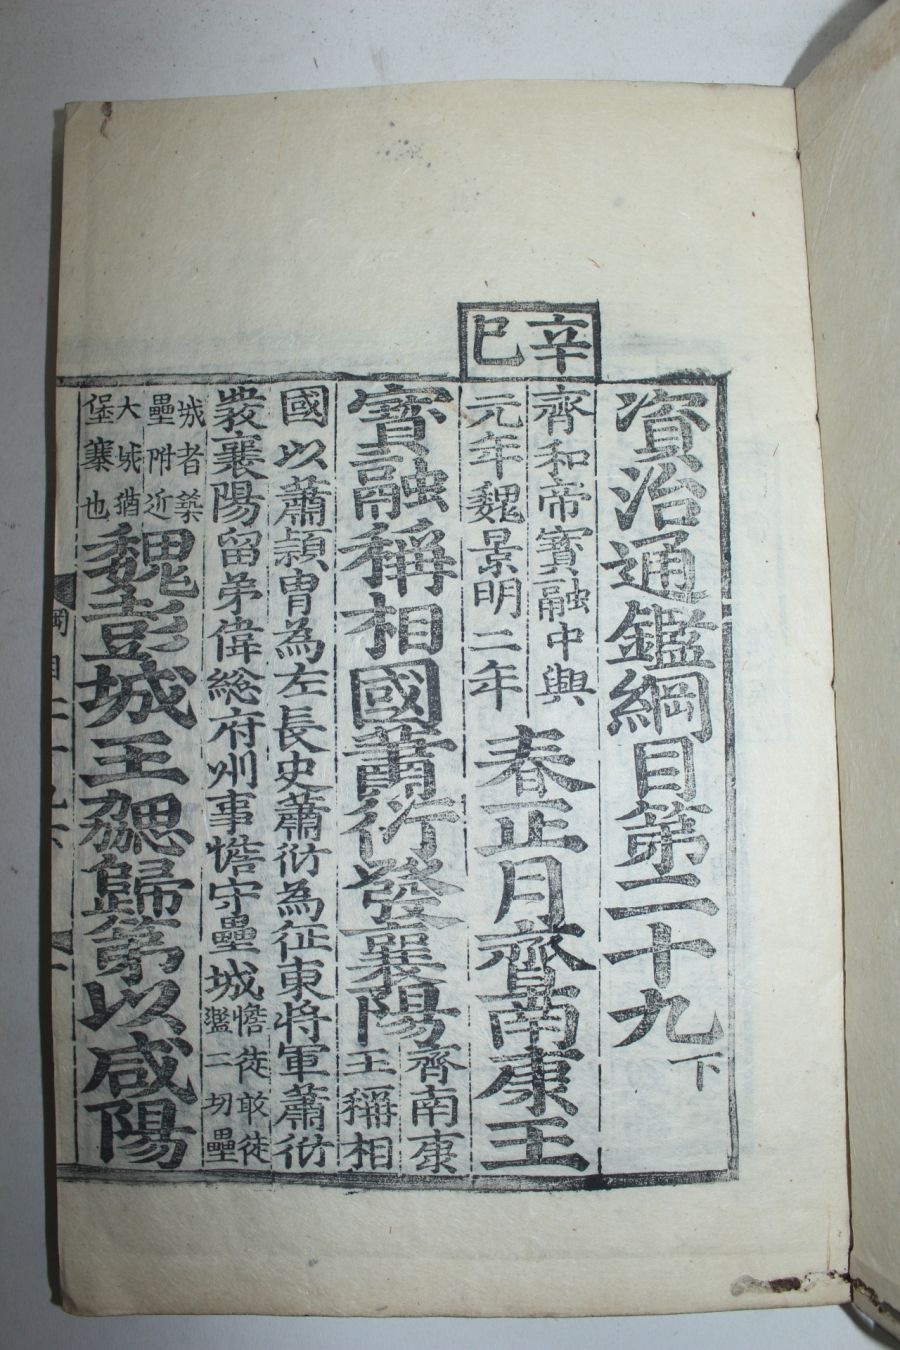 資治通鑑綱目第二十九下
辛巳
齊和帝寶融中興
元年魏景明二年
春正月齊南康王
寶融稱相國蕭衍發襄陽
齊南康
王稱相
國以蕭穎胄為左長史蕭衍為征東將軍蕭衍
發襄陽留弟偉總府州事憺守壘城
憺徒敢徒
濫二切壘
城者築
壘附近
大城猶
堡寨也
魏彭城王勰歸第以咸陽